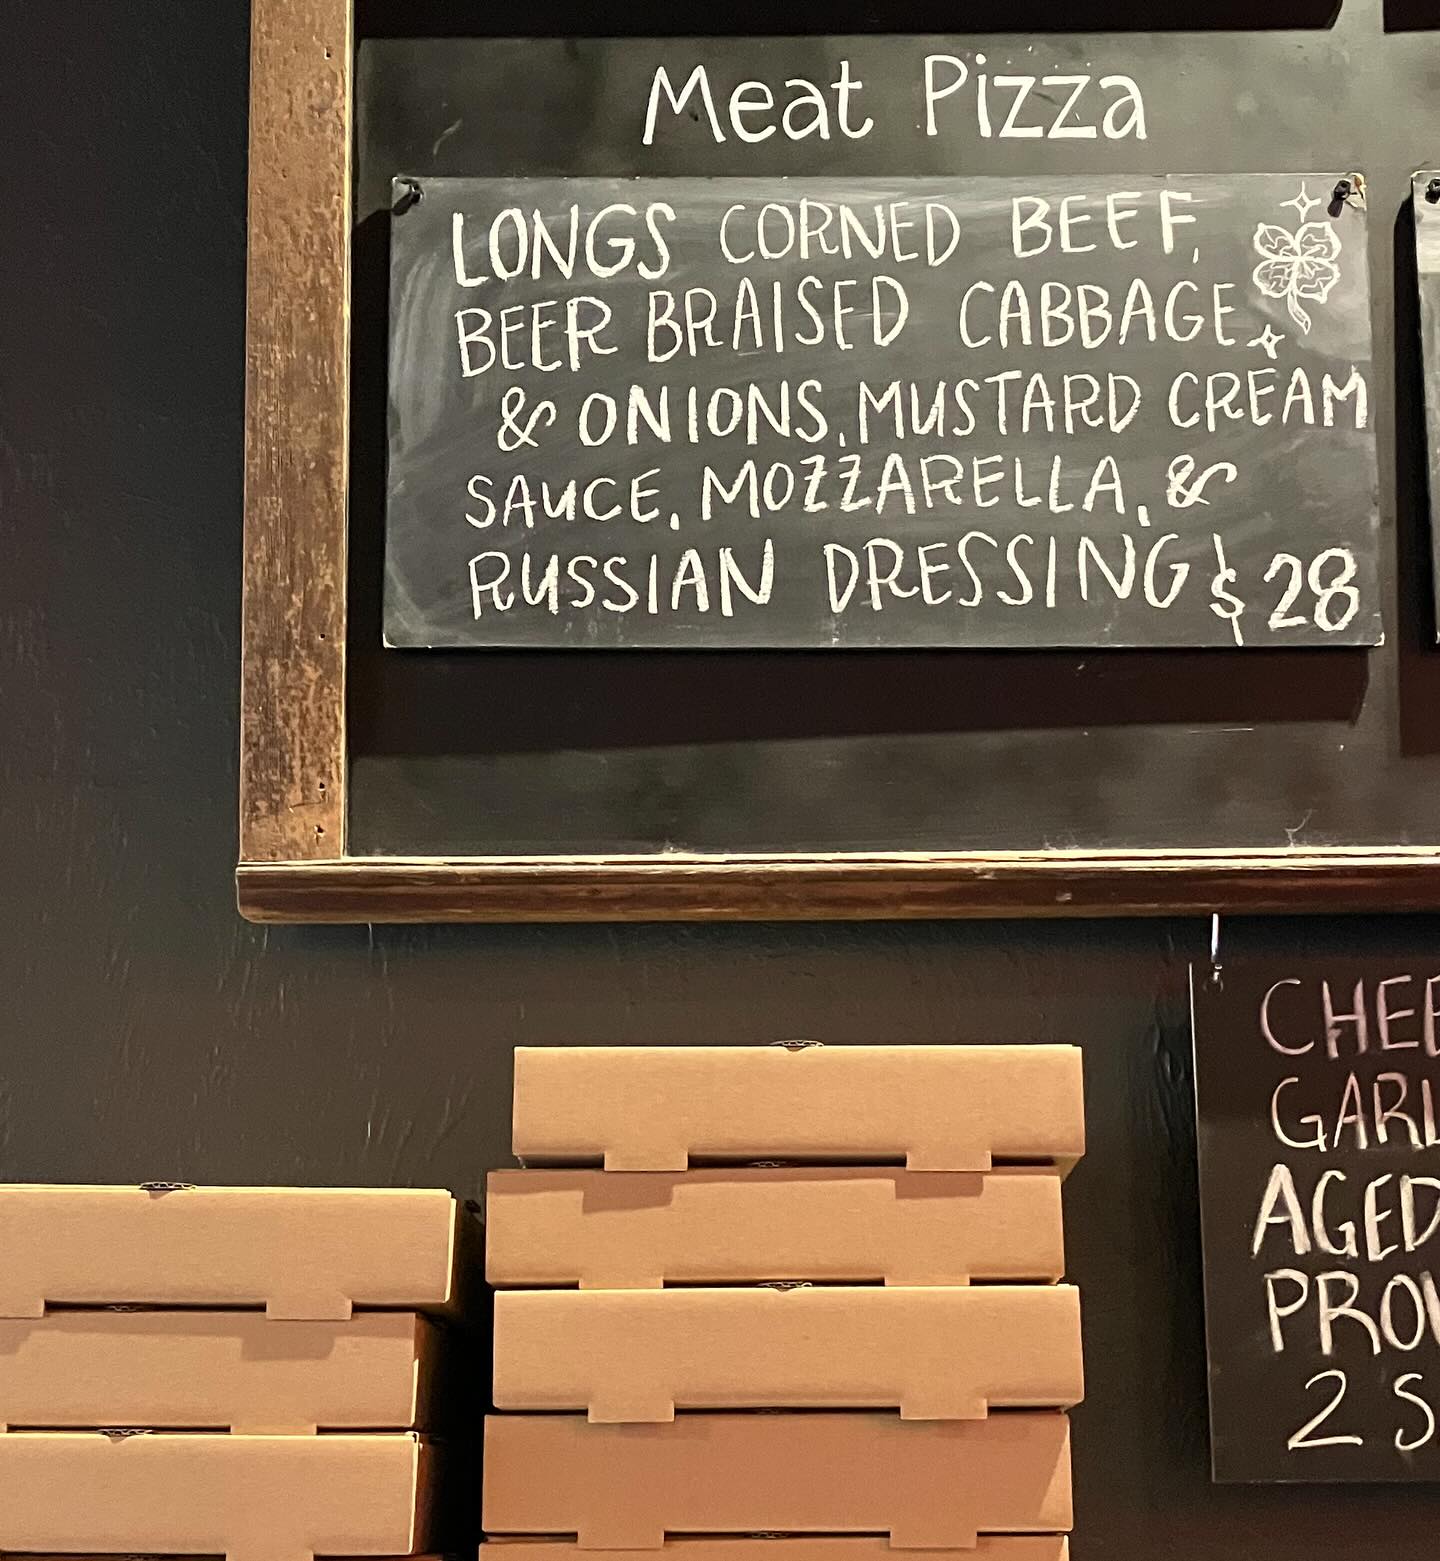 Meat Pizza
LONGS CORNED BEEF,
BEER BRAISED CABBAGE
& ONIONS, MUSTARD CREAM
SAUCE, MOZZARELLA, &
RUSSIAN DRESSING $28
AGED
2